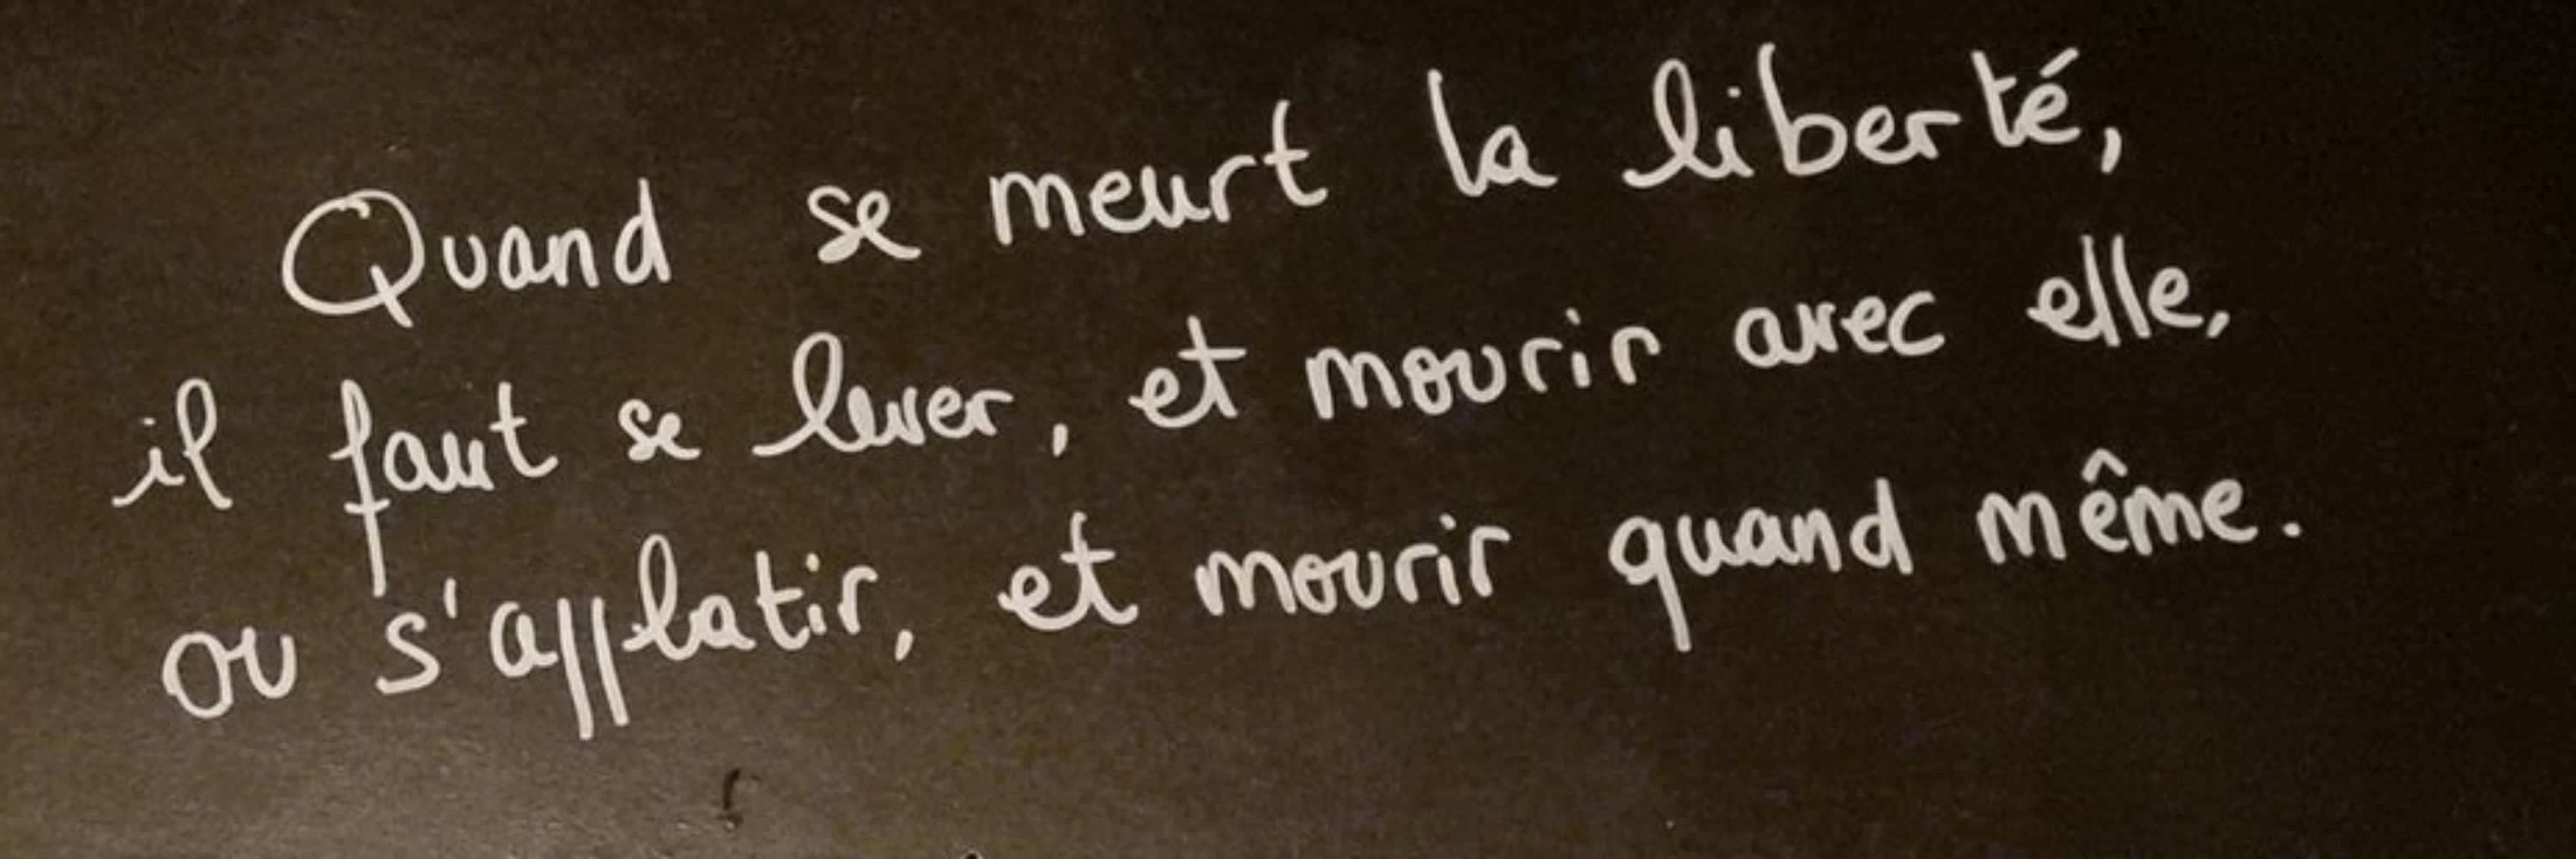 Quand se meurt la liberté,
il faut se lever, et mourir avec elle,
ou s'applatir, et mourir quand même.